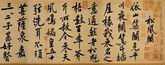 松風閣
依山築閣見平
川夜闌箕斗插
屋椽我来名之
意適然老松
魁梧數百年斧
斤所赦今參天
風鳴媧皇五
十弦洗耳不須
菩薩泉嘉
二三子甚好賢